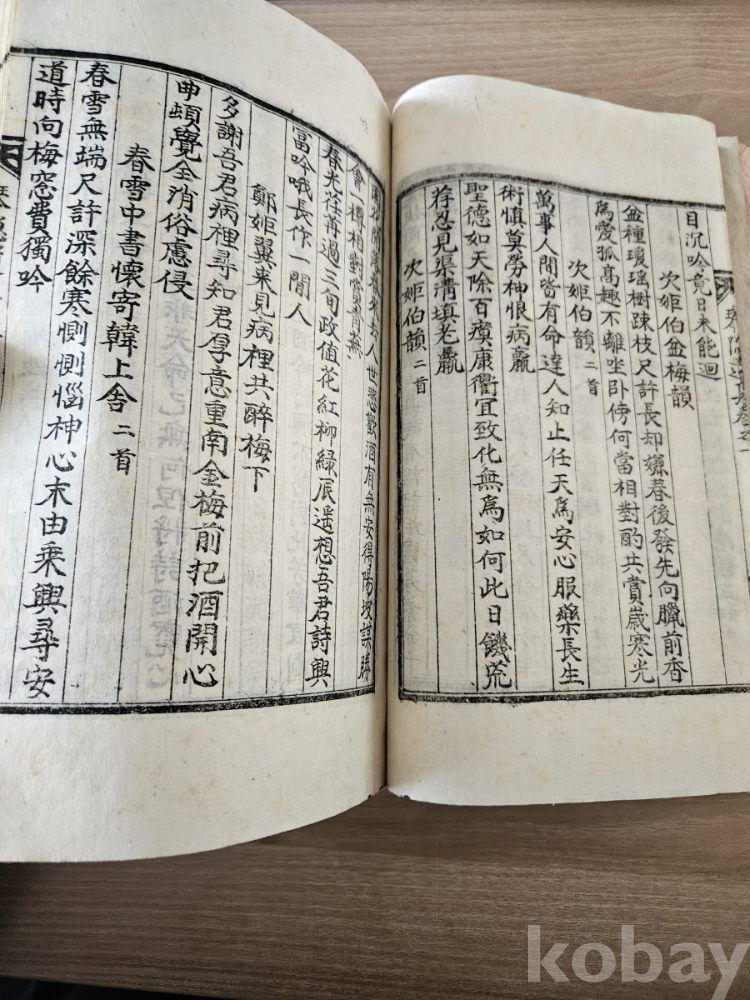 目沉吟竟日未能迴
次姪伯盆梅韻
盆種瓊瑤樹疎枝尺許長却嫌春後發先向臘前香
爲愛孤高趣不離坐卧傍何當相對酌共賞歲寒光
次姪伯韻 二首
萬事人間皆有命達人知止任天爲安心服藥長生
術愼莫勞神恨病羸
聖德如天除百瘼康衢宜致化無爲如何此日饑荒
荐忍見渠溝塡老羸
次姪伯韻 二首
人世悲歡酒有無安得陽坡謀勝
會一樽相對賞靑蕪
春光荏苒過三旬政値花紅柳綠辰遥想吾君詩興
富吟哦長作一閒人
鄭姪翼来見病裡共醉梅下
多謝吾君病裡尋知君厚意重南金梅前把酒開心
曲頓覺全消俗慮侵
春雪中書懷寄韓上舍 二首
春雪無端尺許深餘寒惻惻惱神心末由乘興尋安
道時向梅窓費獨吟
kobay